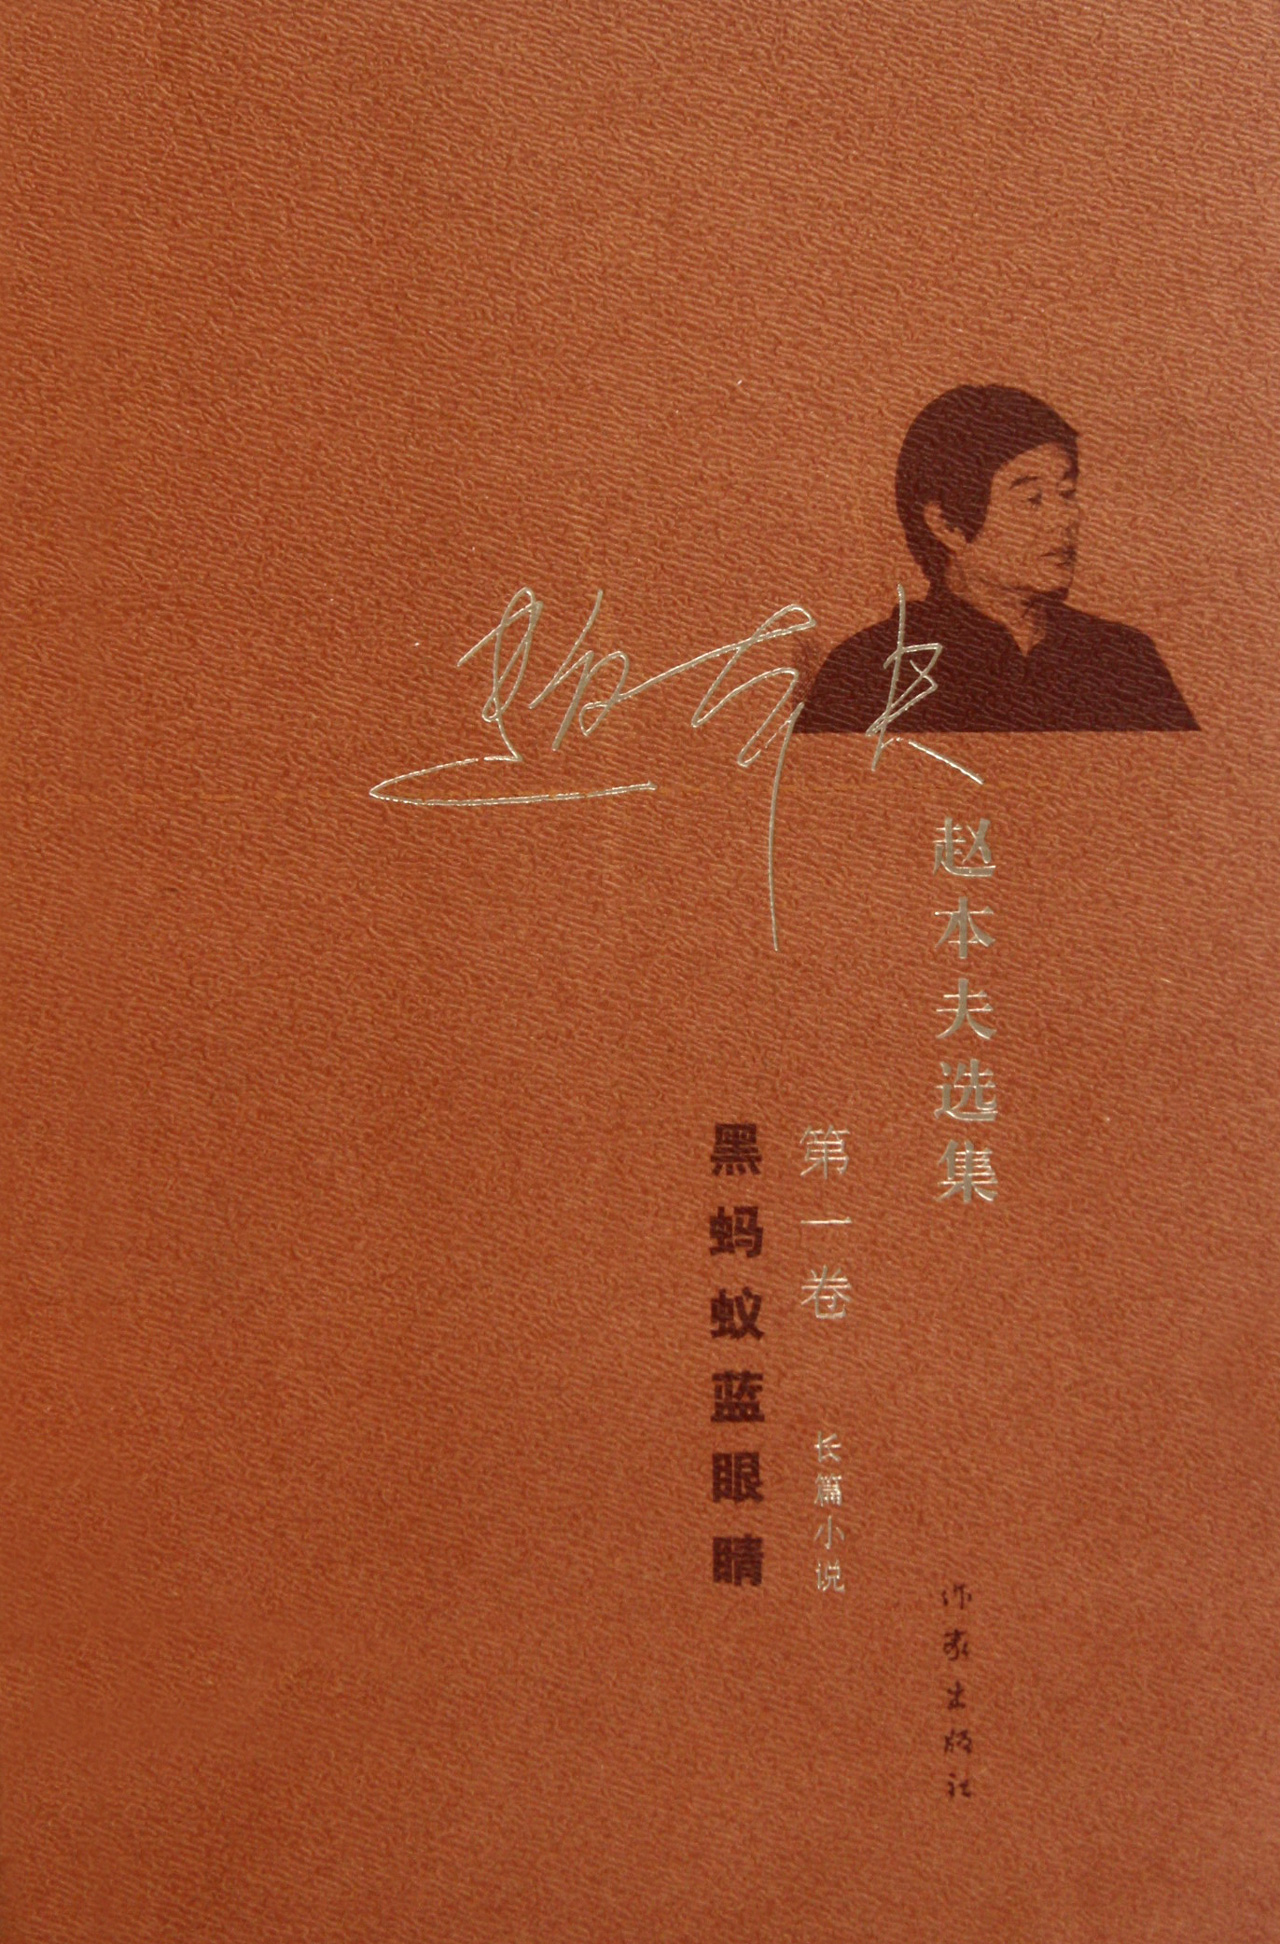 赵本夫
赵本夫选集
第一卷
长篇小说
黑蚂蚁蓝眼睛
作家出版社